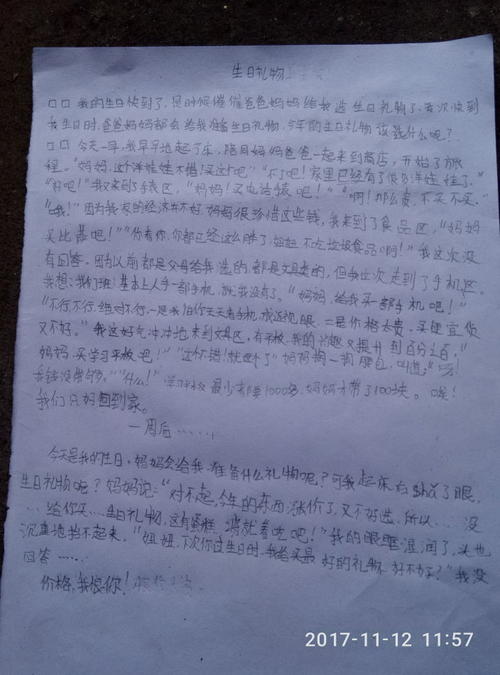 生日礼物
口口我的生日快到了,是时候催催爸爸妈妈给我选生日礼物了,每次快到
我生日时,爸爸妈妈都会给我准备生日礼物,今年的生日礼物该是什么呢?
口口今天一早,我早早地起了床,陪同妈妈爸爸一起来到商店,开始了旅
程。"妈妈,这个洋娃娃不错!买这个吧""不了吧!家里已经有了很多洋娃娃了。"
"好吧!"我又来到了 区,"妈妈!买 吧!""啊!那么贵,不买不买。"
"哦!"因为我家的经济并不好,妈妈很珍惜这些钱,我来到了食品区,"妈妈
买比 吧!""你看你,你都已经这么胖了!妞妞,不吃垃圾食品啊!"我这次没
有回答,因为以前都是父母给我选的,都是文具类的,但我这次走到了手机区。
我想:我们班基本上人手一部手机,就我没有了。"妈妈,给我买一部手机吧!"
"不行不行,绝对不行,一是我怕你天天看手机,成近视眼,二是价格太贵,买便宜货
又不好。"我这好气冲冲地来到文具区,有平板,我的兴趣又提升到百分之百。"
妈妈,买学习平板吧!""这不错!就 了"妈妈掏一掏腰包,叫道:"
钱没带够。""什么!"学习平板最少都要1000多,妈妈才带了100块。哎!
我们只好回到家。
一周后……
今天是我的生日,妈妈会给我准备什么礼物呢?可我起床后 了眼,
生日礼物呢?妈妈说:"对不起,今年的东西涨价了,又不好选,所以……没
…给你买……生日礼物,这有蛋糕, 就着吃吧!"我的眼眶湿润了,头也
沉重地抬不起来。"妞妞,下次你过生日时,我给买最好的礼物好不好?"我没
回答……
价格,我恨你!
2017-11-12 11:57